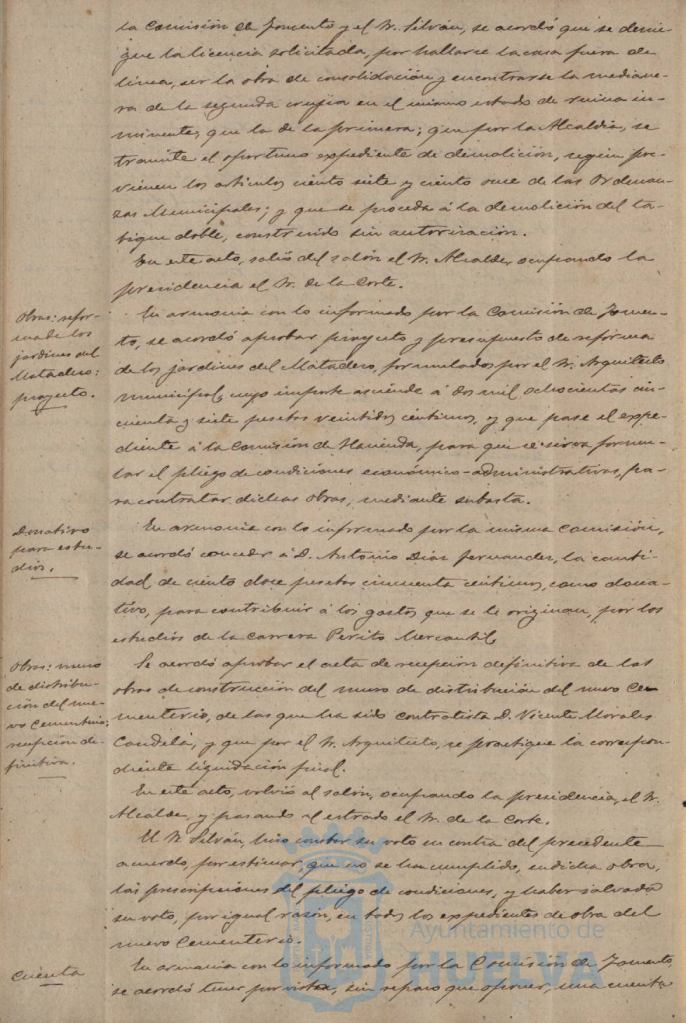 la Comisión de Fomento y el Sr. Silván, se acordó que se denie-
gue la licencia solicitada, por hallarse la casa fuera de
línea, ser la obra de consolidación y encontrarse la mediane-
ra de la segunda crujia en el mismo estado de ruina in-
minente, que la de la primera; que por la Alcaldia, se
tramite el oportuno expediente de demolición, segun pre-
vienen los articulos ciento siete y ciento once de las Ordenan-
zas Municipales; y que se proceda á la demolición del ta-
bique doble, construido sin autorización.
En este acto, salió del salón el Sr. Alcalde, ocupando la
presidencia el Sr. de la Corte.
Obras: refor-
ma de los
jardines del
Matadero:
proyecto.
En armonia con lo informado por la Comisión de Fomen-
to, se acordó aprobar proyecto y presupuesto de reforma
de los jardines del Matadero, formulados por el Sr. Arquitecto
municipal, cuyo importe asciende á dos mil ochocientas cin-
cuenta y siete pesetas veintidos céntimos, y que pase el expe-
diente á la Comisión de Hacienda, para que se sirva formu-
lar el pliego de condiciones económico-administrativas, pa-
ra contratar dichas obras, mediante subasta.
Donativo
para estu-
dios.
En armonia con lo informado por la misma Comisión,
se acordó conceder á D. Antonio Diaz Fernandez, la canti-
dad de ciento doce pesetas cincuenta céntimos, como dona-
tivo, para contribuir á los gastos que se le originan, por los
estudios de la carrera Perito Mercantil.
Obras: muro
de distribu-
ción del nue-
vo Cementerio;
recepción de-
finitiva.
Se acordó aprobar el acta de recepción definitiva de las
obras de construcción del muro de distribución del nuevo Ce-
menterio, de las que ha sido contratista D. Vicente Morales
Candela, y que por el Sr. Arquitecto, se practique la correspon-
diente liquidación final.
En este acto, volvió al salón, ocupando la presidencia, el Sr.
Alcalde, y pasando al estrado el Sr. de la Corte.
El Sr. Silván, hizo constar su voto en contra del precedente
acuerdo, por estimar, que no se han cumplido, en dicha obra,
las prescripciones del pliego de condiciones, y haber salvado
su voto, por igual razón, en todos los expedientes de obra del
nuevo Cementerio.
Cuenta
En armonia con lo informado por la Comisión de Fomento,
se acordó tener por vista, sin reparo que oponer, una cuenta
Ayuntamiento de
HUELVA